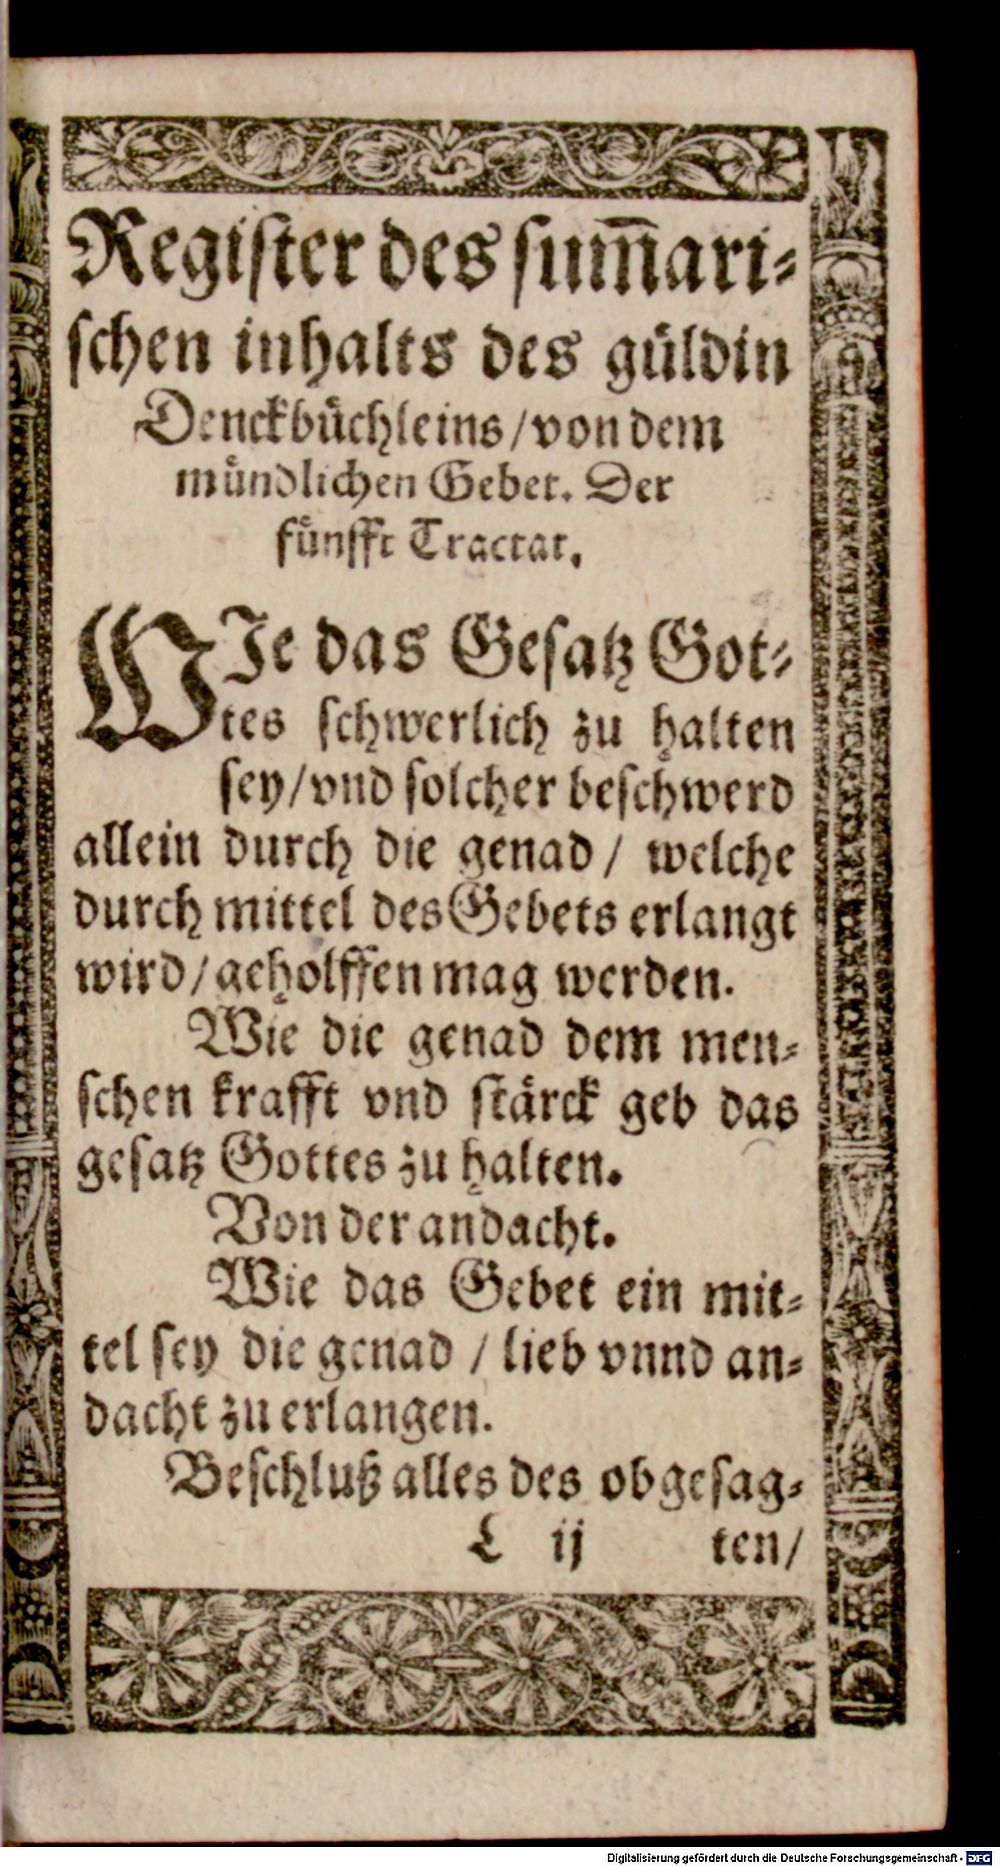 Register des sum̃ari⸗
schen inhalts des guͤldin
Denckbuͤchleins/von dem
muͤndlichen Gebet. Der
fuͤnfft Tractat.
WIe das Gesatz Got⸗
tes schwerlich zu halten
sey/vnd solcher beschwerd
allein durch die genad/ welche
durch mittel des Gebets erlangt
wird/geholffen mag werden.
Wie die genad dem men⸗
schen krafft vnd staͤrck geb das
gesatz Gottes zu halten.
Von der andacht.
Wie das Gebet ein mit⸗
tel sey die genad / lieb vnnd an⸗
dacht zu erlangen.
Beschluß alles des obgesag⸗
L ij ten/
Digitalisierung gefördert durch die Deutsche Forschungsgemeinschaft - DFG